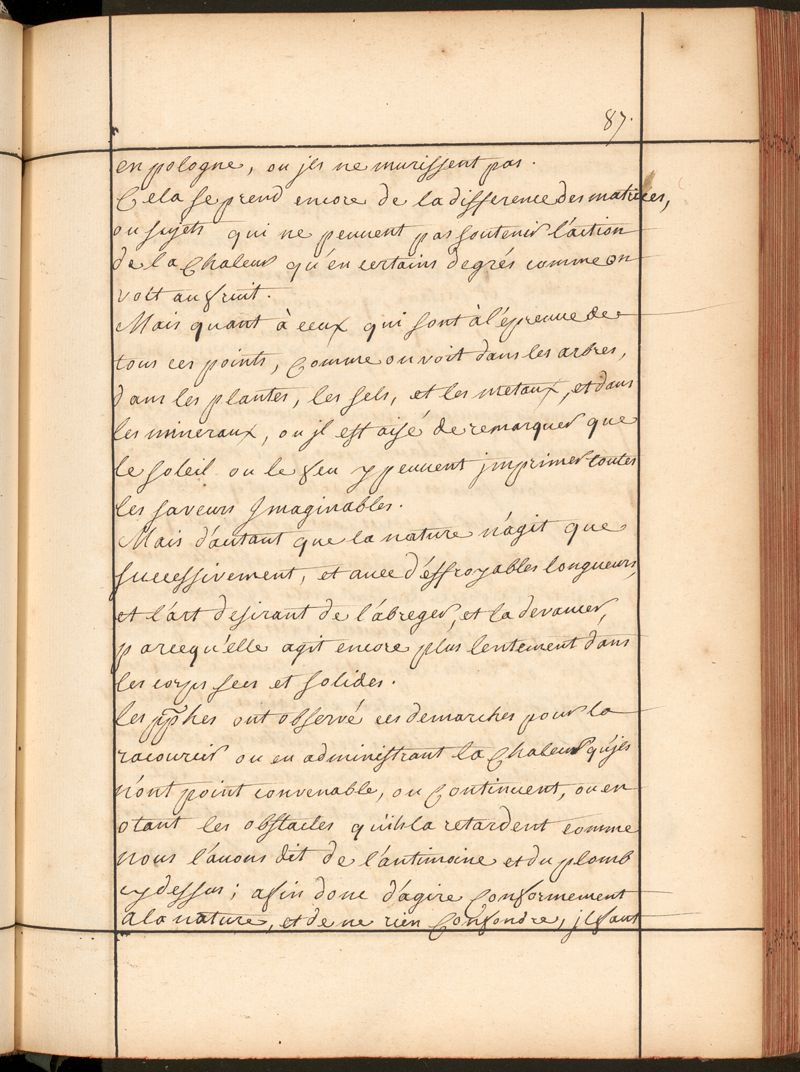 87.
en pologne, ou jls ne murissent pas.
Cela se prend encore de la difference des matrices,
ou sujets qui ne peuuent pas soutenir l'action
de la Chaleur qu'en certains degrés comme on
voit au fruit.
Mais quant à ceux qui sont à l'épreuue de
tous ces points, Comme on voit dans les arbres,
dans les plantes, les sels, et les metaux, et dans
les mineraux, ou jl est aisé de remarquer que
le soleil ou le feu y peuuent jmprimer toutes
les saveurs Jmaginables.
Mais d'autant que la nature n'agit que
successivement, et auec d'éffroyables longueurs,
et l'art desirant de l'abreger, et la devancer,
parcequ'elle agit encore plus lentement dans
les corps secs et solides.
les pphes ont observé ces demarches pour la
racourcir ou en administrant la Chaleur qu'jls
n'ont point convenable, ou Continuent, ou en
otant les obstacles qui la retardent comme
nous l'auons dit de l'antimoine et du plomb
cy dessus; afin donc d'agire Conformement
a la nature, et de ne rien Confondre, jl faut